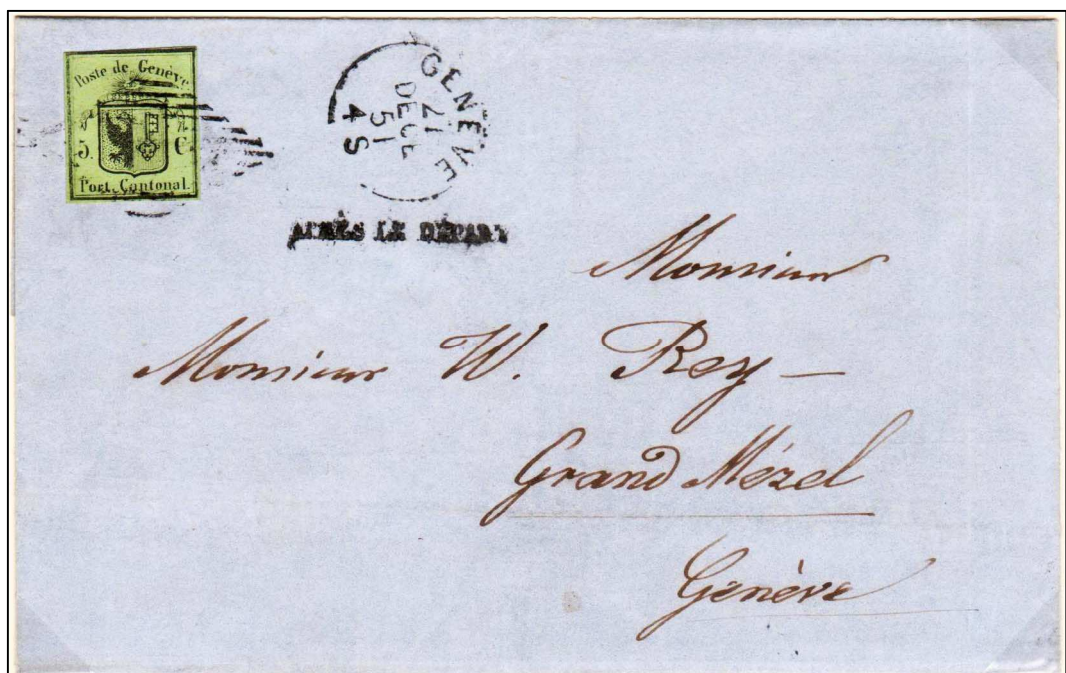 Poste de Genève
5. C
Port Cantonal.
GENÈVE
27
DECE
51
4 S
APRÈS LE DÉPART
Monsieur
Monsieur W. Rey —
Grand Mézel
Genève